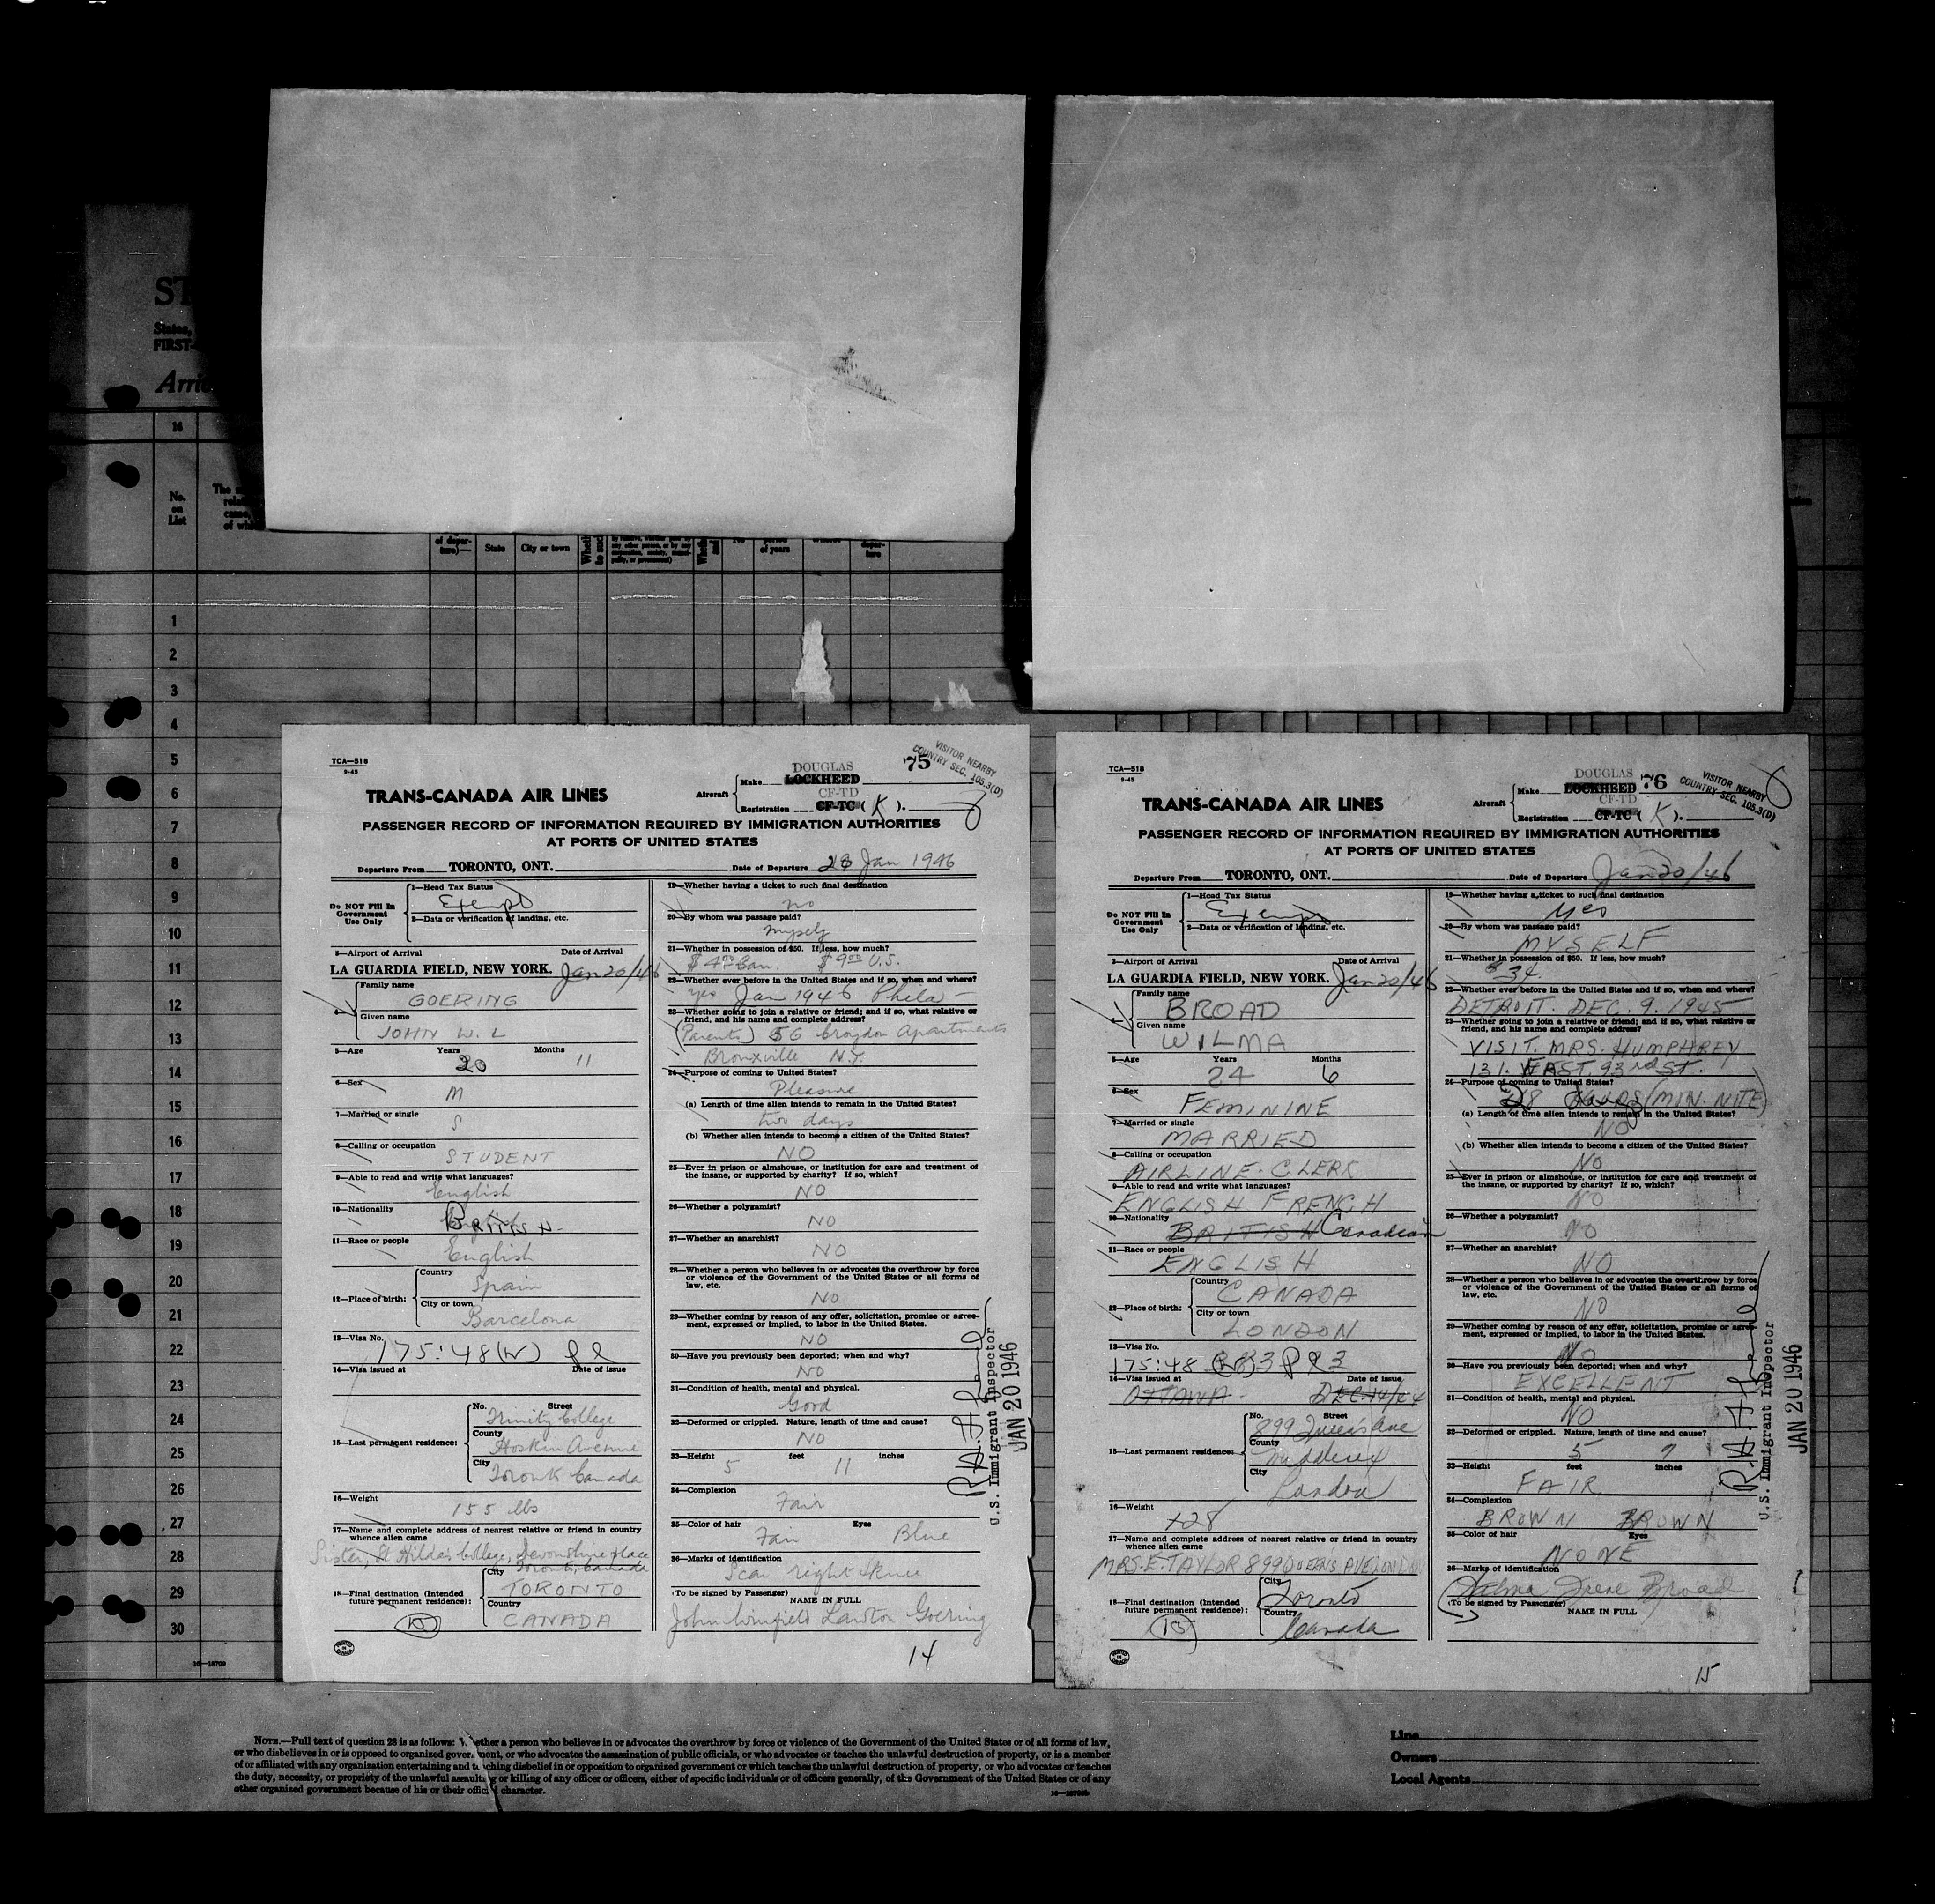 ST
States,
FIRST-
Arri
14
No.
on
List
of depar-
ture)—
State
City or town
any other person, or by any
corporation, society, munici-
pality, or government)
period
of years
depar-
ture
1
2
3
4
5
6
7
8
9
10
11
12
13
14
15
16
17
18
19
20
21
22
23
24
25
26
27
28
29
30
16—18709
TCA—518
9-45
TRANS-CANADA AIR LINES
Aircraft
Make DOUGLAS LOCKHEED
Registration CF-TD CF-TC (K).
75
VISITOR NEARBY
COUNTRY SEC. 105.3(D)
PASSENGER RECORD OF INFORMATION REQUIRED BY IMMIGRATION AUTHORITIES
AT PORTS OF UNITED STATES
Departure From TORONTO, ONT. Date of Departure Jan 1946
Do NOT Fill In
Government
Use Only
1—Head Tax Status
Exempt
2—Data or verification of landing, etc.
3—Airport of Arrival Date of Arrival
LA GUARDIA FIELD, NEW YORK. Jan 20/46
Family name
GOERING
4—
Given name
JOHN W. L
5—Age Years Months
20 11
6—Sex
M
7—Married or single
S
8—Calling or occupation
STUDENT
9—Able to read and write what languages?
English
10—Nationality
BRITISH
11—Race or people
English
12—Place of birth:
Country
Spain
City or town
Barcelona
13—Visa No.
175:48(W)
14—Visa issued at Date of issue
15—Last permanent residence:
No. Street
Trinity College
County
Hoskin Avenue
City
Toronto Canada
16—Weight
155 lbs
17—Name and complete address of nearest relative or friend in country
whence alien came
Sister, St Hilda's College, Devonshire Place
Toronto, Canada
18—Final destination (Intended
future permanent residence):
City
TORONTO
Country
CANADA
19—Whether having a ticket to such final destination
no
20—By whom was passage paid?
myself
21—Whether in possession of $50. If less, how much?
$4.00 Can. $9.00 U.S.
22—Whether ever before in the United States and if so, when and where?
yes Jan 1946 Phila —
23—Whether going to join a relative or friend; and if so, what relative or
friend, and his name and complete address?
(Parents) 56 Croydon Apartments
Bronxville N.Y.
24—Purpose of coming to United States?
Pleasure
(a) Length of time alien intends to remain in the United States?
two days
(b) Whether alien intends to become a citizen of the United States?
NO
25—Ever in prison or almshouse, or institution for care and treatment of
the insane, or supported by charity? If so, which?
NO
26—Whether a polygamist?
NO
27—Whether an anarchist?
NO
28—Whether a person who believes in or advocates the overthrow by force
or violence of the Government of the United States or all forms of
law, etc.
NO
29—Whether coming by reason of any offer, solicitation, promise or agree-
ment, expressed or implied, to labor in the United States.
NO
30—Have you previously been deported; when and why?
NO
31—Condition of health, mental and physical.
Good
32—Deformed or crippled. Nature, length of time and cause?
NO
33—Height feet inches
5 11
34—Complexion
Fair
35—Color of hair Eyes
Fair Blue
36—Marks of identification
Scar right Knee
(To be signed by Passenger) NAME IN FULL
John Winfield Lawton Goering
14
U.S. Immigrant Inspector
JAN 20 1946
TCA—518
9-45
TRANS-CANADA AIR LINES
Aircraft
Make DOUGLAS LOCKHEED
Registration CF-TD CF-TC (K).
76
VISITOR NEARBY
COUNTRY SEC. 105.3(D)
PASSENGER RECORD OF INFORMATION REQUIRED BY IMMIGRATION AUTHORITIES
AT PORTS OF UNITED STATES
Departure From TORONTO, ONT. Date of Departure Jan 20/46
Do NOT Fill In
Government
Use Only
1—Head Tax Status
Exempt
2—Data or verification of landing, etc.
3—Airport of Arrival Date of Arrival
LA GUARDIA FIELD, NEW YORK. Jan 20/46
Family name
BROAD
4—
Given name
WILMA
5—Age Years Months
24 6
6—Sex
FEMININE
7—Married or single
MARRIED
8—Calling or occupation
AIRLINE. CLERK
9—Able to read and write what languages?
ENGLISH FRENCH
10—Nationality
BRITISH Canadian
11—Race or people
ENGLISH
12—Place of birth:
Country
CANADA
City or town
LONDON
13—Visa No.
175:48 (W)
14—Visa issued at Date of issue
OTTAWA.
15—Last permanent residence:
No. Street
899 Queen's Ave
County
Middlesex
City
London
16—Weight
128
17—Name and complete address of nearest relative or friend in country
whence alien came
MRS. E. TAYLOR 899 QUEENS AVE LONDON
18—Final destination (Intended
future permanent residence):
City
Toronto
Country
Canada
19—Whether having a ticket to such final destination
Yes
20—By whom was passage paid?
MYSELF
21—Whether in possession of $50. If less, how much?
$34.
22—Whether ever before in the United States and if so, when and where?
DETROIT DEC. 9. 1945
23—Whether going to join a relative or friend; and if so, what relative or
friend, and his name and complete address?
VISIT. MRS. HUMPHREY
131. EAST. 93rd ST.
24—Purpose of coming to United States?
(MON. NITE)
(a) Length of time alien intends to remain in the United States?
NO
(b) Whether alien intends to become a citizen of the United States?
NO
25—Ever in prison or almshouse, or institution for care and treatment of
the insane, or supported by charity? If so, which?
NO
26—Whether a polygamist?
NO
27—Whether an anarchist?
NO
28—Whether a person who believes in or advocates the overthrow by force
or violence of the Government of the United States or all forms of
law, etc.
NO
29—Whether coming by reason of any offer, solicitation, promise or agree-
ment, expressed or implied, to labor in the United States.
NO
30—Have you previously been deported; when and why?
EXCELLENT
31—Condition of health, mental and physical.
NO
32—Deformed or crippled. Nature, length of time and cause?
5 7
33—Height feet inches
FAIR
34—Complexion
BROWN BROWN
35—Color of hair Eyes
NONE
36—Marks of identification
Wilma Irene Broad
(To be signed by Passenger) NAME IN FULL
15
U.S. Immigrant Inspector
JAN 20 1946
NOTE.—Full text of question 28 is as follows: Whether a person who believes in or advocates the overthrow by force or violence of the Government of the United States or of all forms of law,
or who disbelieves in or is opposed to organized government, or who advocates the assassination of public officials, or who advocates or teaches the unlawful destruction of property, or is a member
of or affiliated with any organization entertaining and teaching disbelief in or opposition to organized government or which teaches the unlawful destruction of property, or who advocates or teaches
the duty, necessity, or propriety of the unlawful assaulting or killing of any officer or officers, either of specific individuals or of officers generally, of the Government of the United States or of any
other organized government because of his or their official character.
Line
Owners
Local Agents